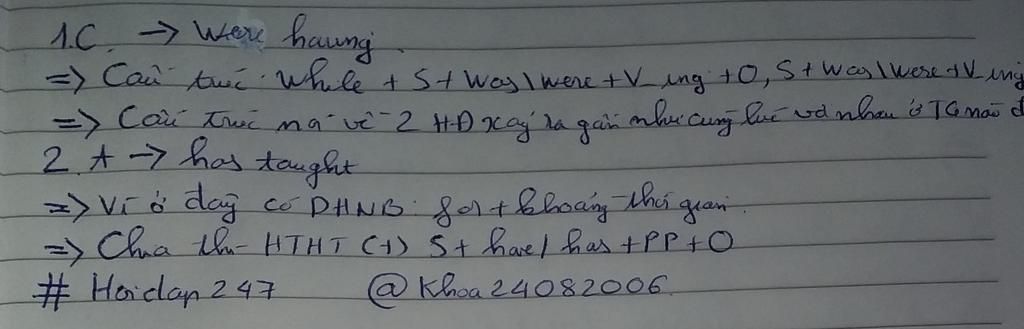 1.C. → Were having.
=> Cấu trúc: While + S + Was\were + V_ing + O, S + Was\Were + V_ing
=> Cấu trúc nà về 2 HĐ xảy ra gần như cùng lúc với nhau ở TG nào đ
2. A → has taught
=> Vì ở đây có DHNB: for + khoảng thời gian.
=> Chia thì HTHT (+) S + have/ has + PP + O
# Hoidap247 @Khoa24082006.